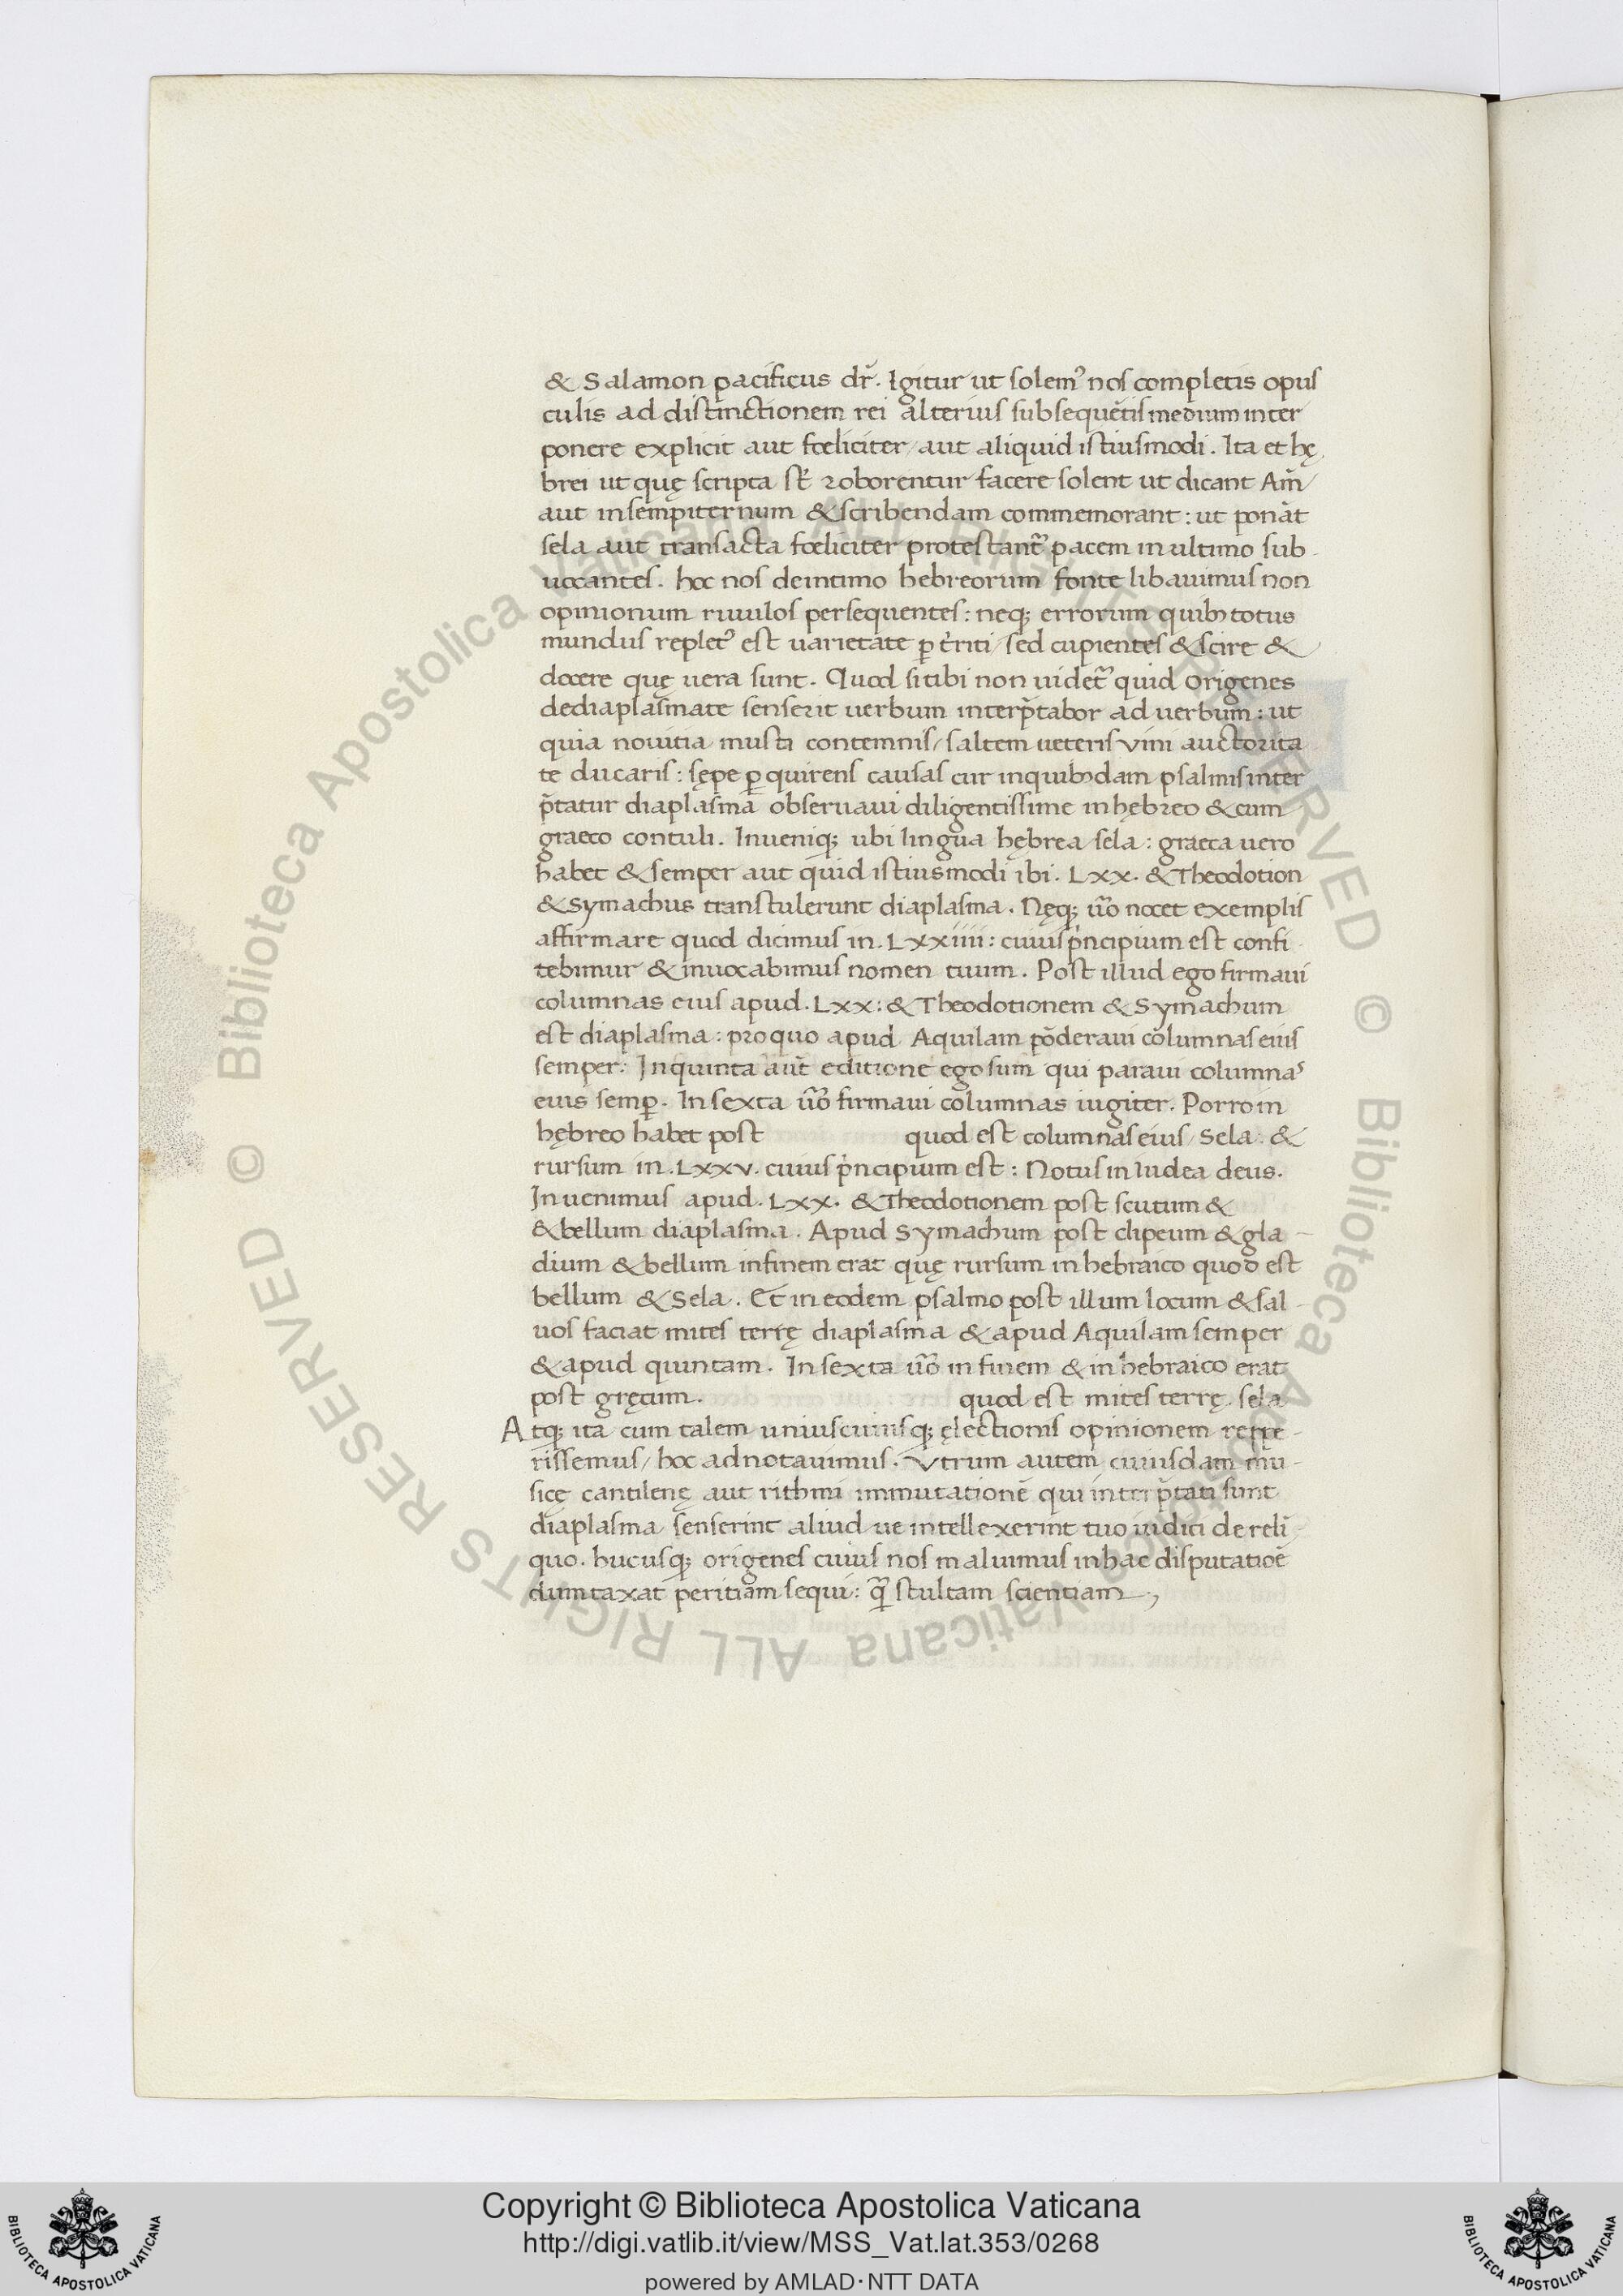 & Salamon pacificus dr̃. Igitur ut solemꝰ nos completis opus
culis ad distinctionem rei alterius subsequẽtis medium inter
ponere explicit aut fœliciter / aut aliquid istiusmodi. Ita et hę
brei ut quę scripta st̃ roborentur facere solent ut dicant Am̃
aut insempiternum & scribendam commemorant : ut ponãt
sela aut transacta fœliciter protestant᷑ pacem in ultimo sub
uocantes. hoc nos de intimo hebreorum fonte libauimus non
opinionum riuulos persequentes : neq; errorum quibꝫ totus
mundus repletꝰ est uarietate ꝑt̃riti / sed cupientes & scire &
docere quę uera sunt. Quod si tibi non uidet᷑ quid Origenes
dediaplasmate senserit uerbum interp̃tabor ad uerbum : ut
quia nouitia musti contemnis / saltem ueteris vini auctorita
te ducaris : sępe ꝑquirens causas cur inquibꝫdam psalmis inter
p̃tatur diaplasma obseruaui diligentissime in hębreo & cum
graeco contuli. Inueniq; ubi lingua hębrea sela : graeca uero
habet & semper aut quid istiusmodi ibi. Lxx. & Theodotion
& Symachus transtulerunt diaplasma. Nęq; ũo nocet exemplis
affirmare quod dicimus in. Lxxiiii : cuius pͥncipium est confi
tebimur & inuocabimus nomen tuum. Post illud ego firmaui
columnas eius apud. Lxx : & Theodotionem & Symachum
est diaplasma : pro quo apud Aquilam põderaui columnas eius
semper : In quinta aũt editione ego sum qui paraui columnas
eius semꝑ. In sexta ũo firmaui columnas iugiter. Porro in
hębreo habet post quod est columnas eius / Sela : &
rursum in. Lxxv. cuius pͥncipium est : Notus in Iudea deus.
Inuenimus apud. Lxx. & Theodotionem post scutum &
& bellum diaplasma. Apud Symachum post clipeum & gla
dium & bellum infinem erat quę rursum in hebraico quod est
bellum & Sela. Et in eodem psalmo post illum locum & sal
uos faciat mites terrę diaplasma & apud Aquilam semper
& apud quintam. In sexta ũo in finem & in hebraico erat
post gręcum. quod est mites terrę. sela
Atq; ita cum talem uniuscuiusq; ęlectionis opinionem reppe
rissemus / hoc adnotauimus. Vtrum autem cuiusdam mu
sicę cantilenę aut rithmi immutationẽ qui interp̃tati sunt
diaplasma senserint aliud ue intellexerint tuo iuditi de reli
quo. hucusq; origenes cuius nos maluimus inhac disputatiõe
dumtaxat peritiam sequi : q̃ stultam scientiam
© Biblioteca Apostolica Vaticana ALL RIGHTS RESERVED © Biblioteca Apostolica Vaticana ALL RIGHTS RESERVED
Copyright © Biblioteca Apostolica Vaticana
http://digi.vatlib.it/view/MSS_Vat.lat.353/0268
powered by AMLAD · NTT DATA
BIBLIOTECA APOSTOLICA VATICANA
BIBLIOTECA APOSTOLICA VATICANA